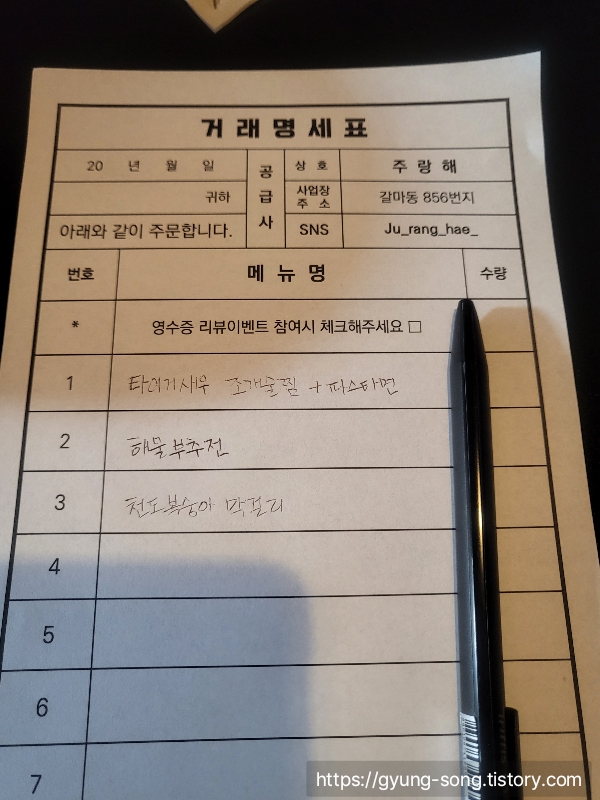 거래명세표
20 년 월 일 공급사 상호 주랑해
귀하 사업장 주소 갈마동 856번지
아래와 같이 주문합니다. SNS Ju_rang_hae_
번호 메뉴명 수량
* 영수증 리뷰이벤트 참여시 체크해주세요 □
1 타이거새우 조개술찜 + 파스타면
2 해물부추전
3 천도복숭아 막걸리
4
5
6
7
https://gyung-song.tistory.com